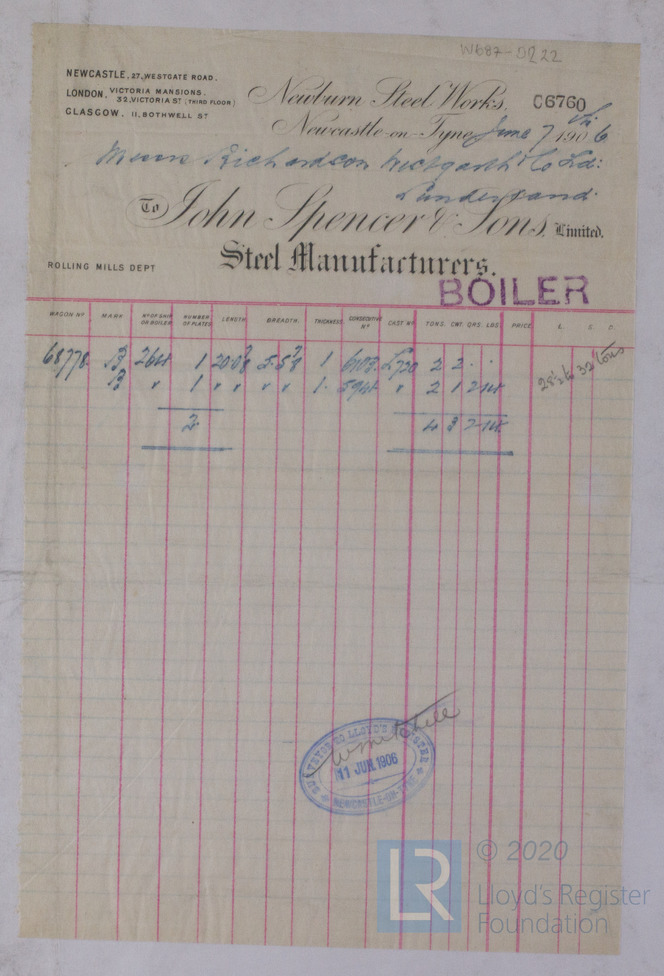 W687-0222
NEWCASTLE, 27, WESTGATE ROAD.
LONDON, VICTORIA MANSIONS. 32, VICTORIA ST (THIRD FLOOR)
GLASGOW, 11, BOTHWELL ST
Newburn Steel Works, 06760
Newcastle-on-Tyne, June 7th 1906
Messrs Richardson Westgarth & Co Ltd:
Sunderland.
To John Spencer & Sons, Limited.
Steel Manufacturers.
ROLLING MILLS DEPT
BOILER
WAGON No MARK No OF SHIP OR BOILER NUMBER OF PLATES LENGTH BREADTH. THICKNESS CONSECUTIVE No CAST No TONS. CWT. QRS. LBS. PRICE £. S. D.
68778. 264 1 1 2 2 . .
" 1 " " " " 1. " 2 1 2 14
2. 4 3 2 14
28½ to 32 tons
W Mitchell
SURVEYOR TO LLOYD'S REGISTER
11 JUN. 1906
NEWCASTLE-ON-TYNE
LR
© 2020
Lloyd's Register
Foundation